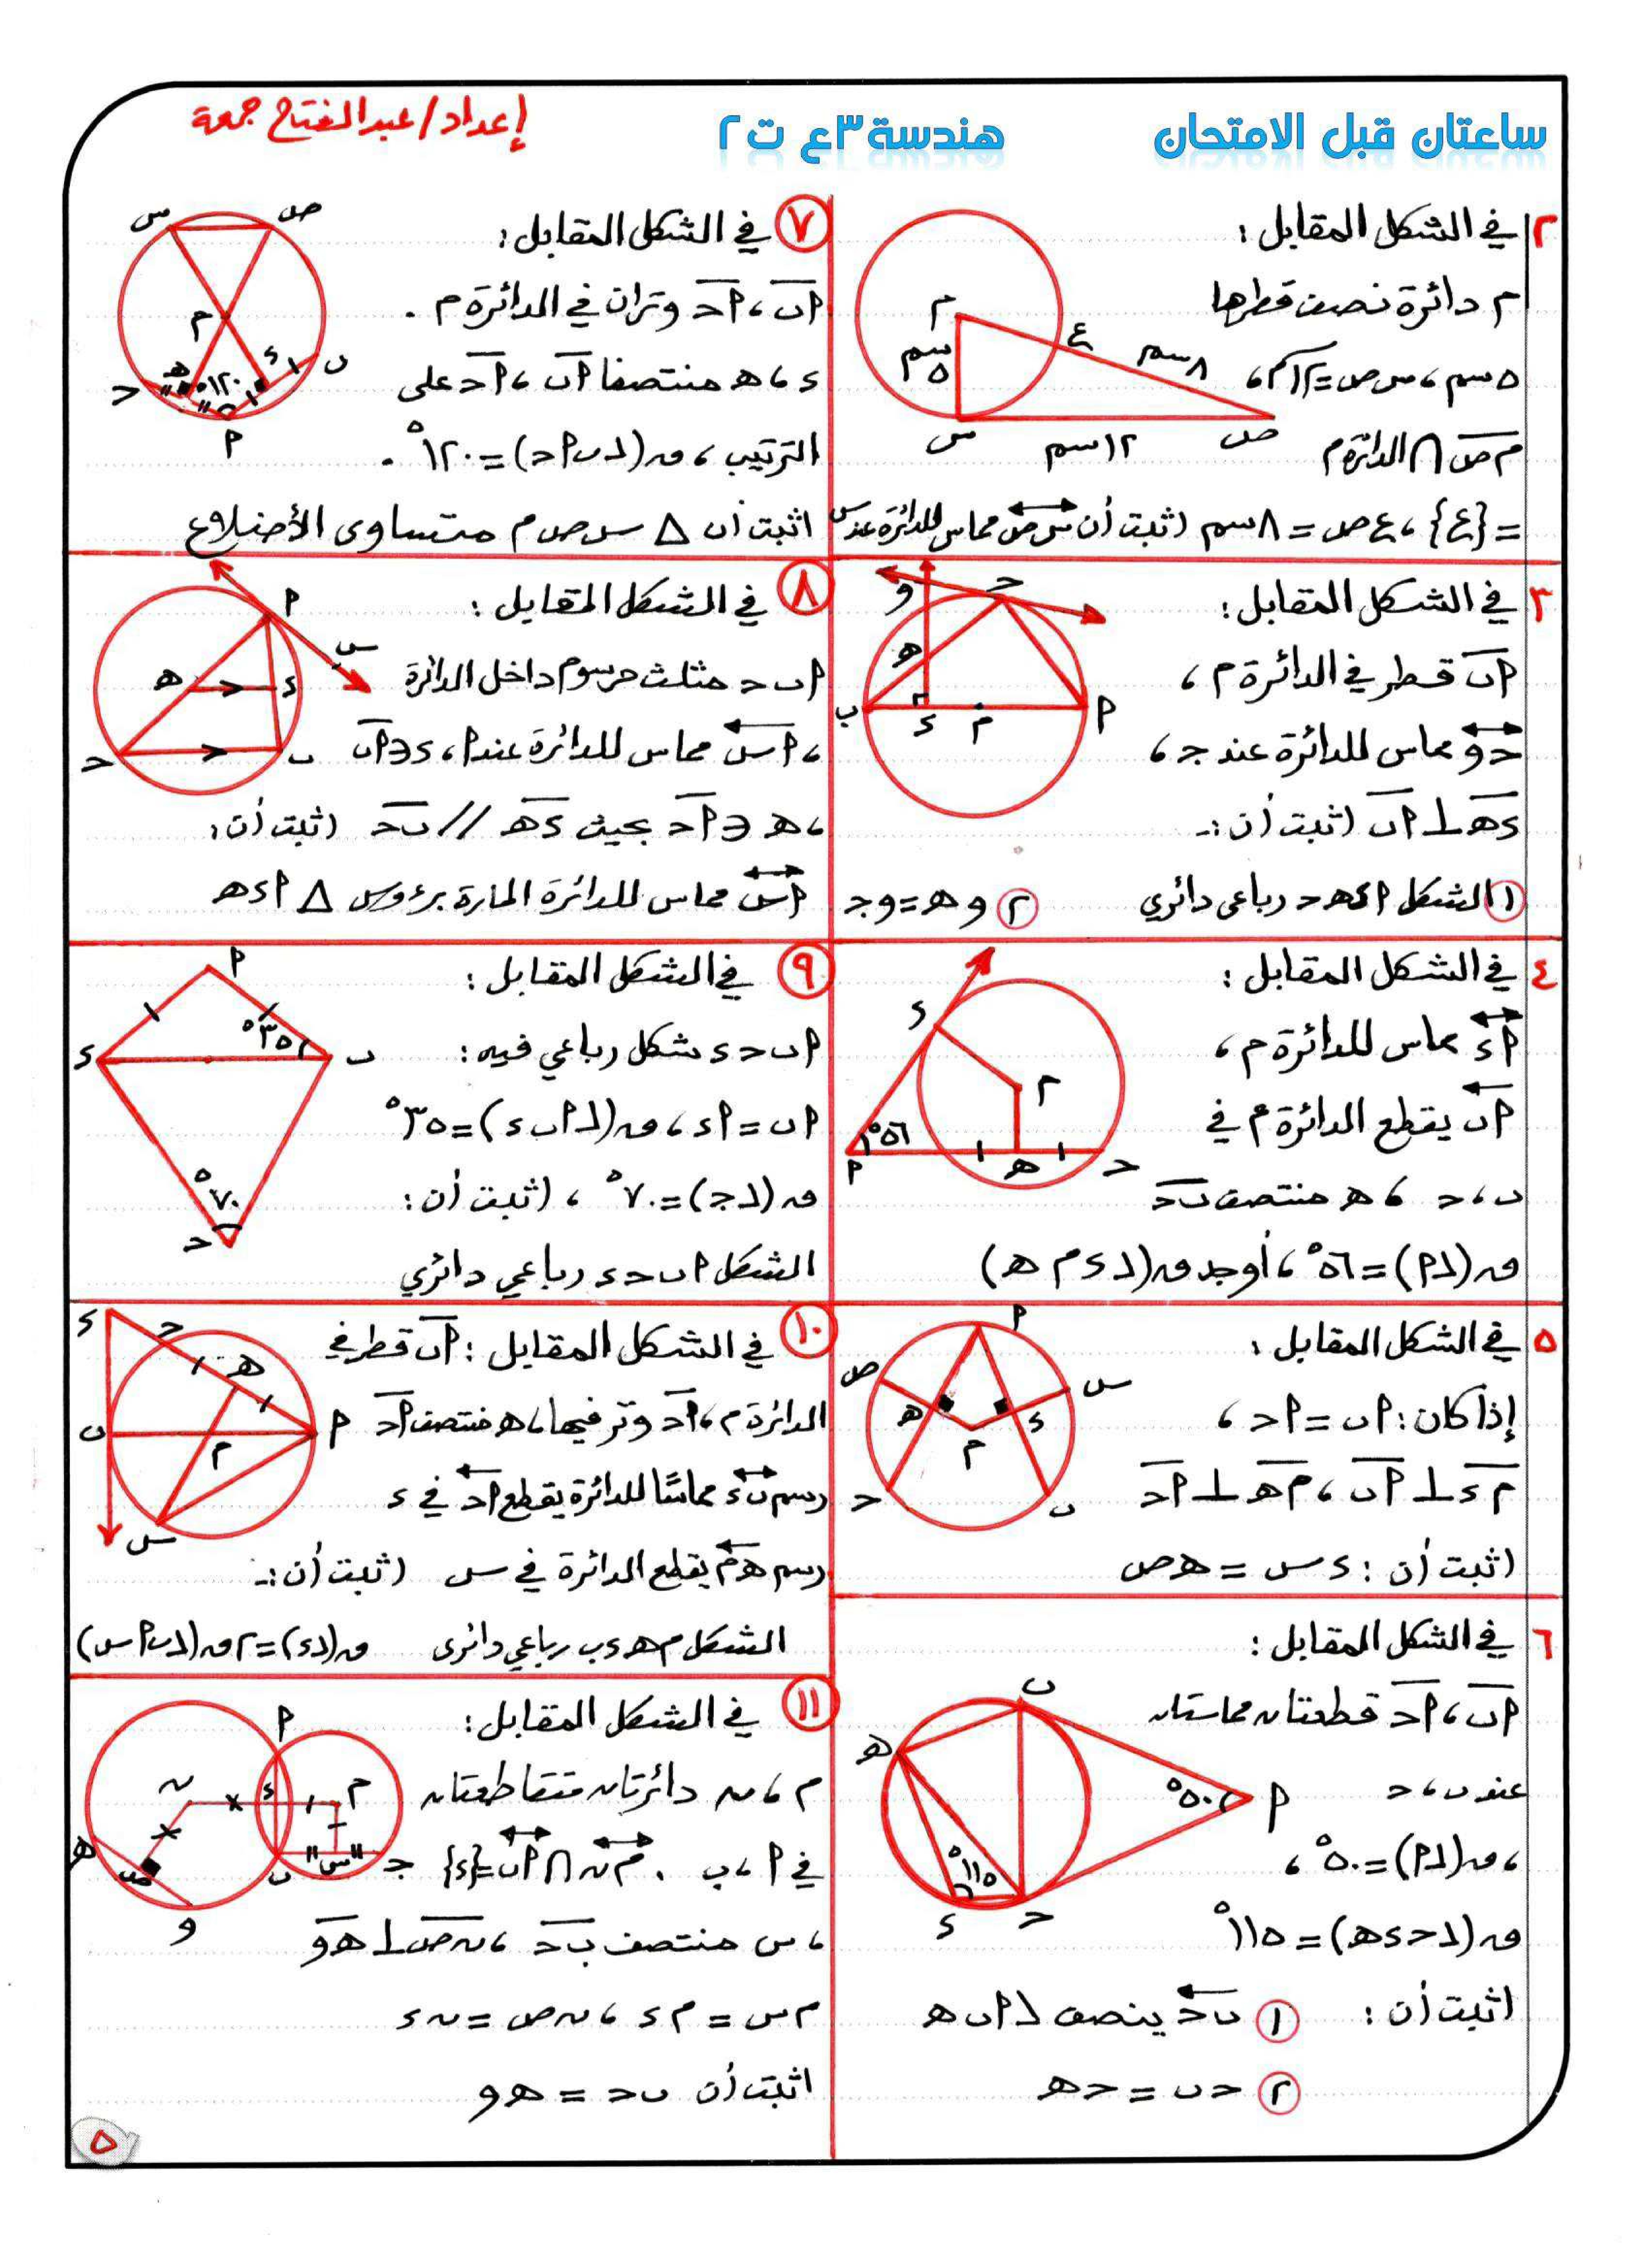 ساعتان قبل الامتحان
هندسة ٣ع ت٢
إعداد/ عبدالفتاح جمعة
٢ في الشكل المقابل :
م دائرة نصف قطرها
٥سم ، س ص = ١٢سم ،
م ص ∩ الدائرة م
= {ع} ، ع ص = ٨سم اثبت أن س ص مماس للدائرة عند س
م
ع
٥سم
٨سم
س
١٢سم
ص
٣ في الشكل المقابل :
أب قطر في الدائرة م ،
جو مماس للدائرة عند ج ،
د هـ ⊥ أب اثبت أن :ـ
١ الشكل أ د هـ ج رباعي دائري
٢ و هـ = و ج
و
ج
هـ
ب
د
م
أ
٤ في الشكل المقابل :
أد مماس للدائرة م ،
أب يقطع الدائرة م في
ب ، ج ، هـ منتصف ب ج
ق(∠أ) = ٥٦° ، أوجد ق(∠د م هـ)
د
م
٥٦°
أ
هـ
ج
٥ في الشكل المقابل :
إذا كان : أب = أج ،
م د ⊥ أب ، م هـ ⊥ أج
اثبت أن : د س = هـ ص
أ
ص
س
هـ
د
م
ج
ب
٦ في الشكل المقابل :
أب ، أج قطعتان مماستان
عند ب ، ج
، ق(∠أ) = ٥٠° ،
ق(∠ج د هـ) = ١١٥°
اثبت أن :
١ ب ج ينصف ∠أ ب هـ
٢ ج ب = ج هـ
ب
هـ
٥٠°
أ
١١٥°
د
ج
٧ في الشكل المقابل :
أب ، أج وتران في الدائرة م .
د ، هـ منتصفا أب ، أج على
الترتيب ، ق(∠ب أ ج) = ١٢٠° .
اثبت أن △ س ص م متساوى الأضلاع
س
ص
م
هـ
د
ب
ج
١٢٠°
أ
٨ في الشكل المقابل :
أ ب ج مثلث مرسوم داخل الدائرة
، أس مماس للدائرة عند أ ، د ∈ أب
، هـ ∈ أج بحيث د هـ // ب ج اثبت أن :
أس مماس للدائرة المارة برءوس △ أ د هـ
أ
س
هـ
د
ج
ب
٩ في الشكل المقابل :
أ ب ج د شكل رباعي فيه :
أب = أد ، ق(∠أ ب د) = ٣٥°
ق(∠ج) = ٧٠° ، اثبت أن :
الشكل أ ب ج د رباعي دائري
أ
٣٥°
د
ب
٧٠°
ج
١٠ في الشكل المقابل : أب قطر في
الدائرة م ، أج وتر فيها ، هـ منتصف أج
رسم ب د مماسًا للدائرة يقطع أج في د
رسم هـ م يقطع الدائرة في س اثبت أن :ـ
الشكل م هـ د ب رباعي دائرى ق(∠د) = ٢ق(∠ب أ س)
د
ج
هـ
ب
م
أ
س
١١ في الشكل المقابل :
م ، ن دائرتان متقاطعتان
في أ ، ب . م ن ∩ أب = {د}
، س منتصف ب ج ، ن ص ⊥ هـ و
م س = م د ، ن ص = ن د
اثبت أن ب ج = هـ و
أ
ن
د
م
هـ
ص
ب
س
ج
و
٥